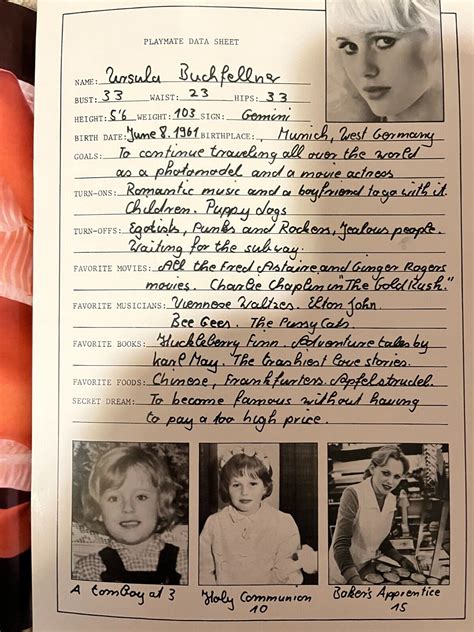 PLAYMATE DATA SHEET
NAME: Ursula Buchfellner
BUST: 33 WAIST: 23 HIPS: 33
HEIGHT: 5'6 WEIGHT: 103 SIGN: Gemini
BIRTH DATE: June 8, 1961 BIRTHPLACE: Munich, West Germany
GOALS: To continue traveling all over the world
as a photomodel and a movie actress
TURN-ONS: Romantic music and a boyfriend to go with it.
Children. Puppy dogs
TURN-OFFS: Egotists, Punks and Rockers, Jealous people.
Waiting for the subway.
FAVORITE MOVIES: All the Fred Astaire and Ginger Rogers
movies. Charlie Chaplin in "The Gold Rush."
FAVORITE MUSICIANS: Viennese Waltzes. Elton John.
Bee Gees. The Pussy Cats.
FAVORITE BOOKS: Huckleberry Finn. Adventure tales by
Karl May. The trashiest love stories.
FAVORITE FOODS: Chinese, Frankfurters. Apfelstrudel.
SECRET DREAM: To become famous without having
to pay a too high price.
A tomboy at 3
Holy Communion
10
Baker's Apprentice
15